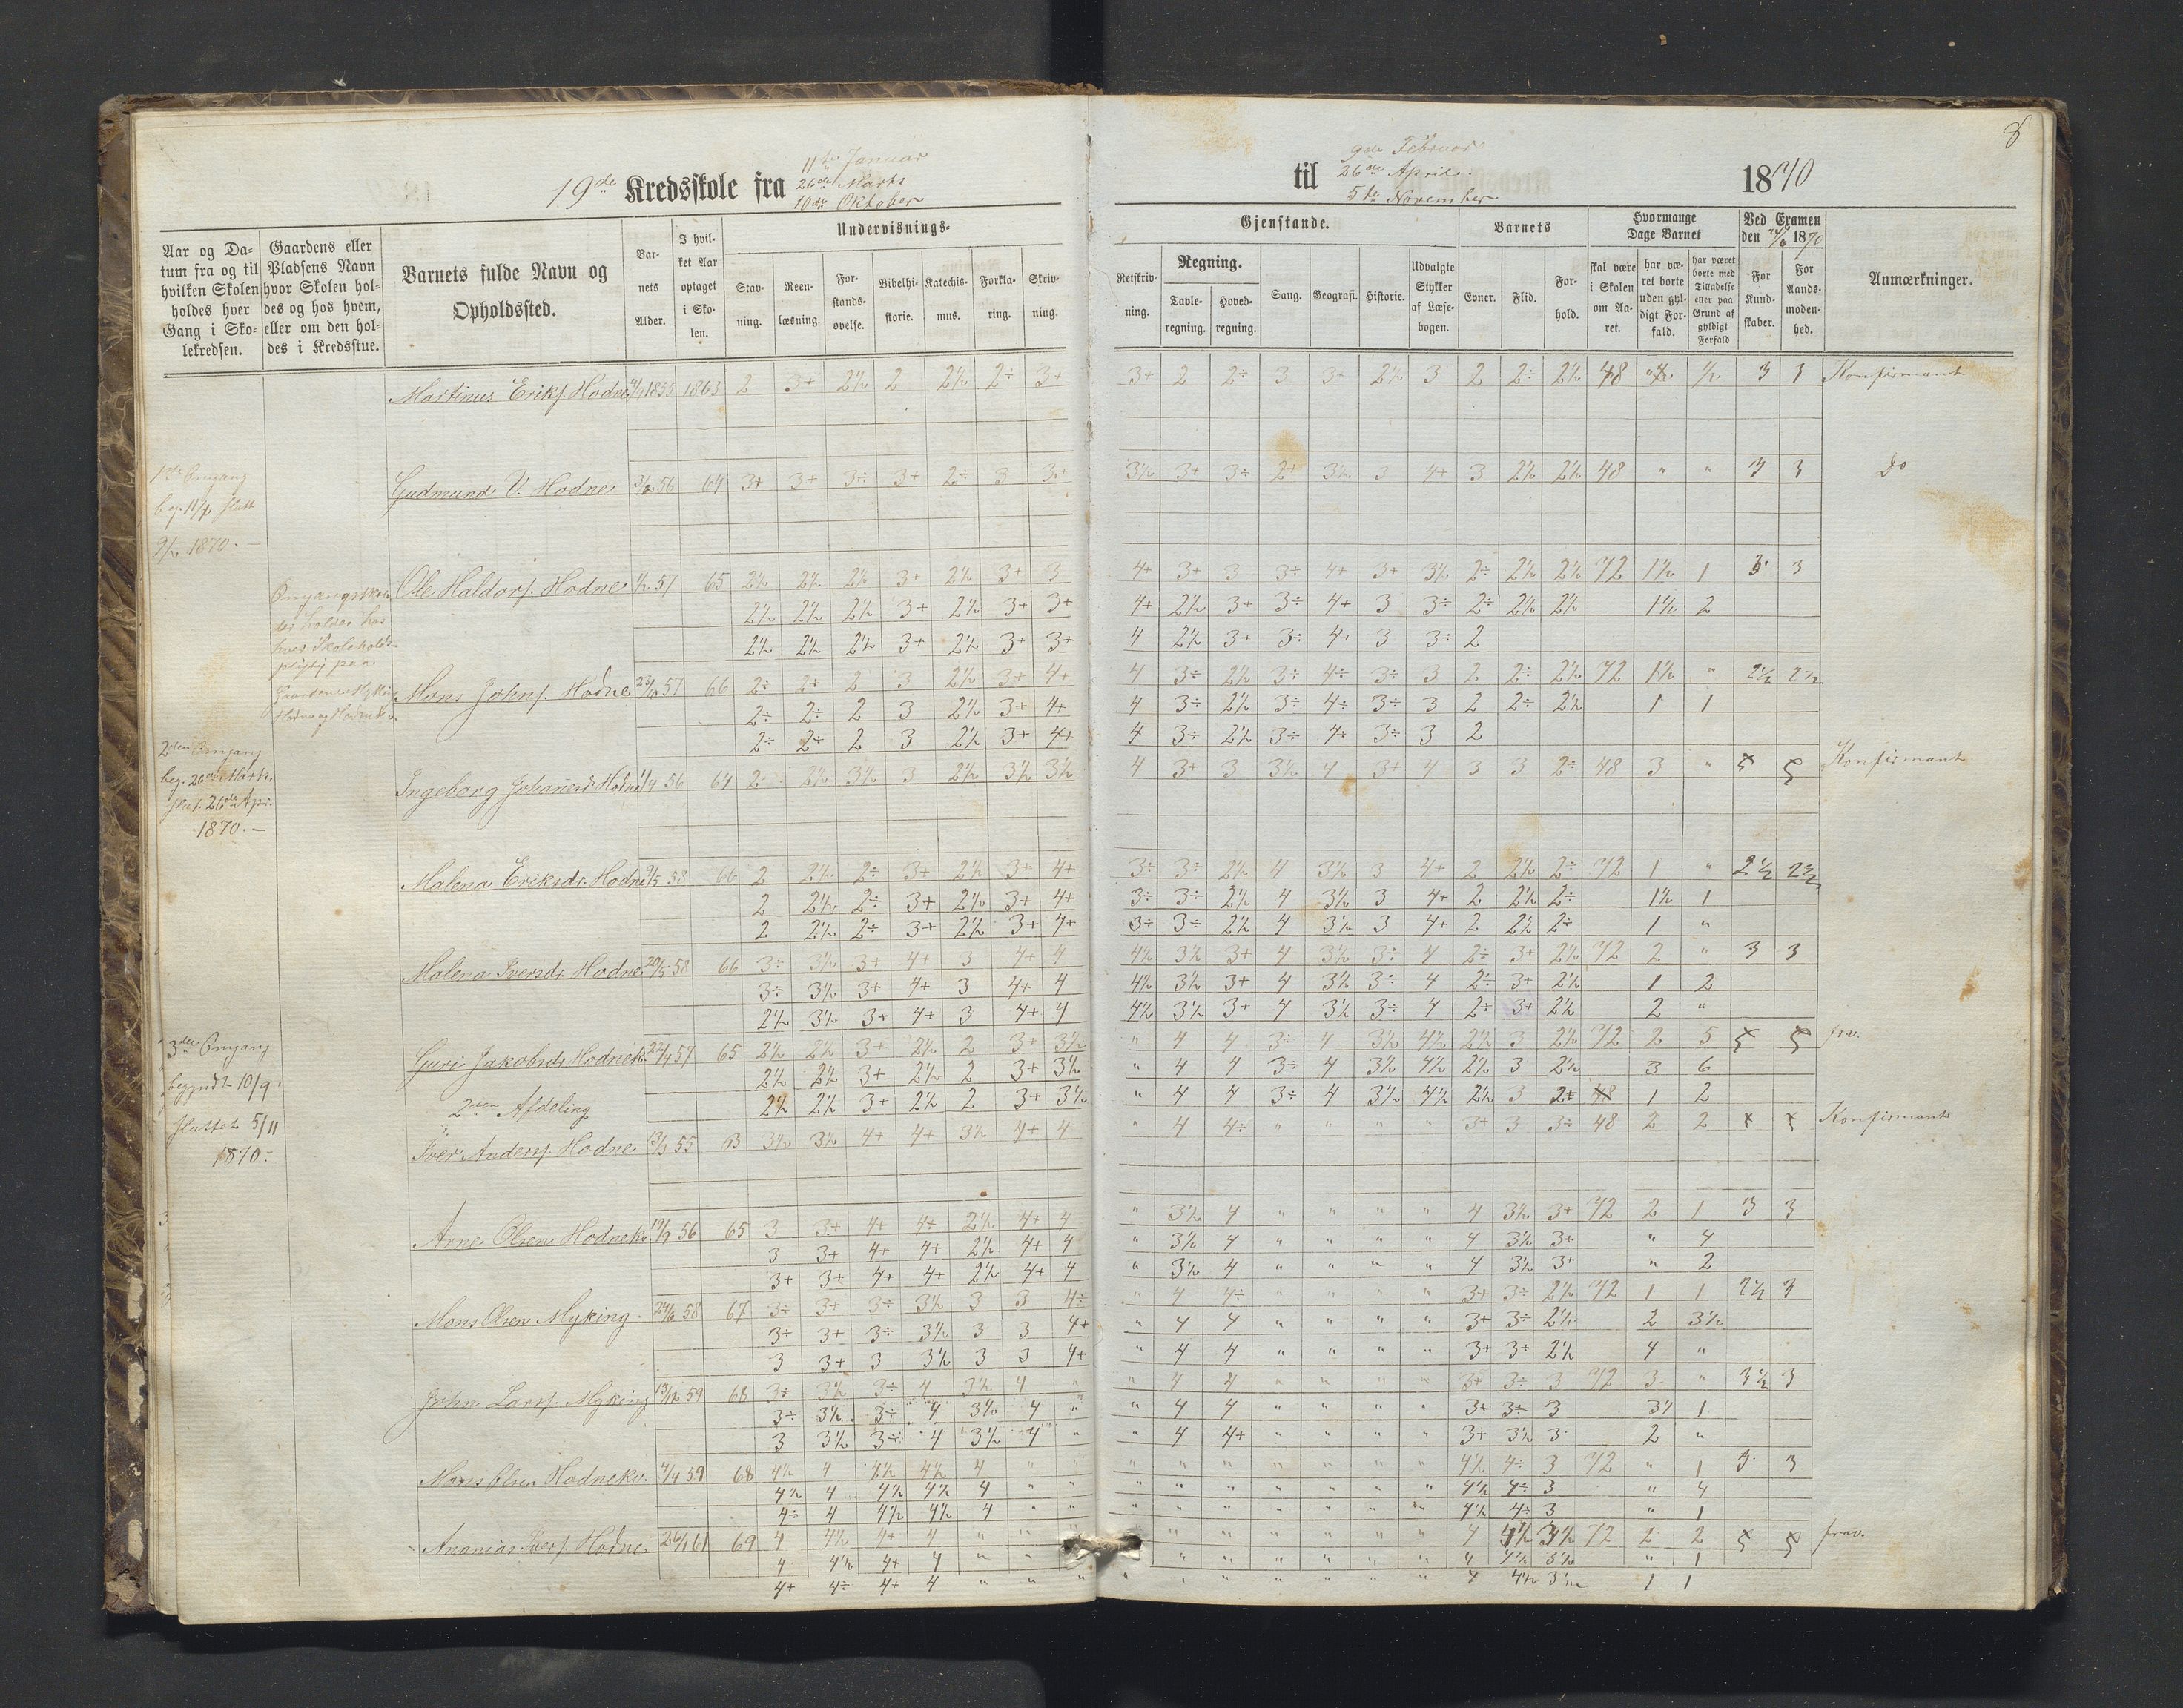 8
19de Kredsskole fra 11te Januar 26de Marts 10de Oktober til 9de Februar 26de April 5te November 1870
Undervisnings- Gjenstande. Barnets Hvormange Dage Barnet Ved Examen den 1870
Aar og Datum fra og til hvilken Skolen holdes hver Gang i Skolekredsen.
Gaardens eller Pladsens Navn hvor Skolen holdes og hos hvem, eller om den holdes i Kredsstue.
Barnets fulde Navn og Opholdssted.
Barnets Alder.
I hvilket Aar optaget i Skolen.
Stavning. Reenlæsning. Forstandsøvelse. Bibelhistorie. Katechismus. Forklaring. Skrivning.
Retskrivning. Regning. Tavleregning. Hovedregning. Sang. Geografi. Historie. Udvalgte Stykker af Læsebogen.
Evner. Flid. Forhold.
skal være i Skolen om Aaret. har været borte uden gyldigt Forfald. har været borte med Tilladelse eller paa Grund af gyldigt Forfald
For Kundskaber. For Aandsmodenhed.
Anmærkninger.
Martinus Eriks. Hodne 1855 1863 2 3+ 2½ 2 2½ 2÷ 3+ 3+ 2 2÷ 3 3+ 2½ 3 2 2÷ 2½ 48 ½ 3 3 Konfirmant
1ste Omgang
beg. 11/1 slutt
9/2 1870.
Gudmund V. Hodne 56 64 3+ 3+ 3÷ 3+ 2÷ 3 3+ 3½ 3+ 3÷ 2+ 3½ 3 4+ 3 2½ 2½ 48 " " 3 3 Do
Omgangsskole
des holdes hos
hver Skoleholds-
pligtig paa
Gaardene Myking
Hodne og Hodnekv.
Ole Haldors. Hodne 57 65 2½ 2½ 2½ 3+ 2½ 3+ 3 4+ 3+ 3 3÷ 4+ 3+ 3½ 2÷ 2½ 2½ 72 1½ 1 3 3
2½ 2½ 2½ 3+ 2½ 3+ 3+ 4+ 2½ 3+ 3÷ 4+ 3 3÷ 2÷ 2½ 2½ 1½ 2
2½ 2½ 2½ 3+ 2½ 3+ 3+ 4 2½ 3+ 3÷ 4+ 3 3÷ 2
Mons Johns. Hodne 23/10 57 66 2÷ 2÷ 2 3 2½ 3+ 4+ 4 3÷ 2½ 3÷ 4÷ 3÷ 3 2 2÷ 2½ 72 1½ " 2½ 2½
2÷ 2÷ 2 3 2½ 3+ 4+ 4 3÷ 2½ 3÷ 4÷ 3÷ 3 2 2÷ 2½ 1 1
2÷ 2÷ 2 3 2½ 3+ 4+ 4 3÷ 2½ 3÷ 4÷ 3÷ 3 2
2den Omgang
beg. 26de Marts.
slut. 26de Apr.
1870.
Ingeborg Johannesd. Hodne 56 64 2÷ 2½ 3½ 3 2½ 3½ 3½ 4 3+ 3 3½ 4 3+ 4 3 3 2÷ 48 3 " Konfirmant
Malena Eriksdr. Hodne 58 66 2 2½ 2÷ 3+ 2½ 3+ 4+ 3÷ 3÷ 2½ 4 3½ 3 4+ 2 2½ 2÷ 72 1 " 2½ 2½
2 2½ 2÷ 3+ 2½ 3+ 4+ 3÷ 3÷ 2½ 4 3½ 3 4+ 2 2½ 2÷ 1½ 1
2 2½ 2÷ 3+ 2½ 3+ 4+ 3÷ 3÷ 2½ 4 3½ 3 4+ 2 2½ 2÷ 1 "
Malena Iversdr. Hodne 20/5 58 66 3÷ 3½ 3+ 4+ 3 4+ 4 4½ 3½ 3+ 4 3½ 3÷ 4 2÷ 3+ 2½ 72 2 " 3 3
3÷ 3½ 3+ 4+ 3 4+ 4 4½ 3½ 3+ 4 3½ 3÷ 4 2÷ 3+ 2½ 1 2
2½ 3½ 3+ 4+ 3 4+ 4 4½ 3½ 3+ 4 3½ 3÷ 4 2÷ 3+ 2½ 2 "
3die Omgang
begyndt 10/9
sluttet 5/11
1870
Guri Jakobsdr. Hodnekv. 57 65 2½ 2½ 3+ 2½ 2 3+ 3½ " 4 4 3÷ 4 3½ 4½ 2½ 3 2½ 72 2 5 frv.
2½ 2½ 3+ 2½ 2 3+ 3½ " 4 4 3÷ 4 3½ 4½ 2½ 3 2½ 3 6
2½ 2½ 3+ 2½ 2 3+ 3½ " 4 4 3÷ 4 3½ 4½ 2½ 3 2÷ 1 2
2den Afdeling
Iver Anders. Hodne 13/3 55 63 3½ 3½ 4+ 4+ 3½ 4+ 4 " 4 4÷ " " " " 3+ 3 3÷ 48 2 2 Konfirmant
Arne Olsen Hodnekv. 56 65 3 3+ 4+ 4÷ 2½ 4+ 4 " 3½ 4 " " " " 4 3½ 3+ 72 2 1 3 3
3 3+ 4+ 4+ 2½ 4+ 4 " 3½ 4 " " " " 4 3½ 3+ " 4
3+ 3+ 4+ 4+ 2½ 4+ 4 " 3½ 4 " " " " 4 3½ 3+ " 2
Mons Olsen Myking 58 67 3÷ 3+ 3÷ 3½ 3 3 4÷ " 4 4÷ " " " " 3+ 3÷ 2½ 72 1 1 2½ 3
3÷ 3+ 3÷ 3½ 3 3 4+ " 4 4 " " " " 3+ 3÷ 2½ 2 3½
3 3+ 3 3½ 3 3 4+ " 4 4 " " " " 3+ 3+ 2½ 4 "
John Lars. Myking 13/12 59 68 3÷ 3½ 3÷ 4 3½ 4 " " 4 4 " " " " 3+ 3÷ 3 72 3 " 3½ 3
3÷ 3½ 3÷ 4 3½ 4 " " 4 4 " " " " 3+ 3÷ 3 3½ 1
3 3½ 3÷ 4 3½ 4 " " 4 4+ " " " " 3+ 3½ 3 2 "
Mons Olsen Hodnekv. 59 68 4½ 4 4½ 4½ 4 " " " " " " " " " 4½ 4÷ 3 72 " 1 3 3
4½ 4 4½ 4½ 4 " " " " " " " " " 4½ 4÷ 3 " 4
4÷ 4 4½ 4½ 4 " " " " " " " " " 4½ 4÷ 3 " 1
Ananias Ivers. Hodne 26/1 61 69 4 4½ 4+ 4 " " " " " " " " " 4 72 2 2 frav.
4 4½ 4+ 4 " " " " " " " " 4 4½ 3½ " 1
4+ 4÷ 4+ 4 " " " " " " " " 4 4½ 3½ 1 1